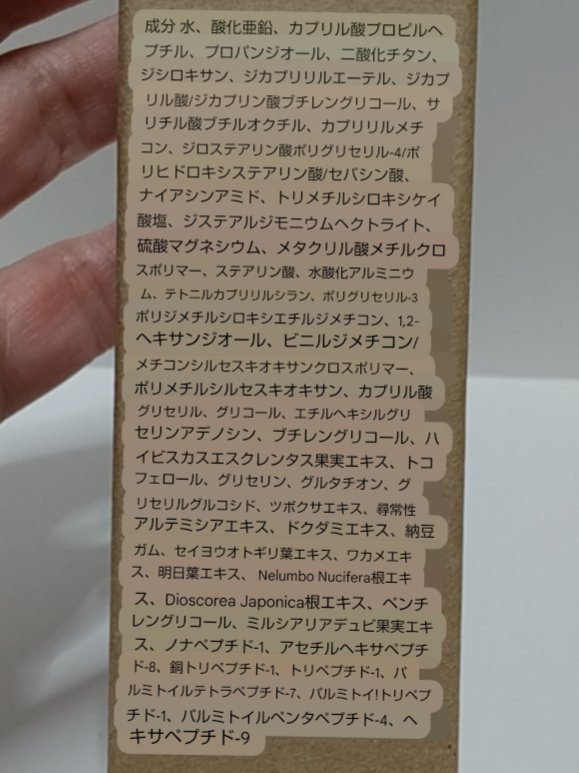 成分 水、酸化亜鉛、カプリル酸プロピルヘ
プチル、プロバンジオール、二酸化チタン、
ジシロキサン、ジカプリリルエーテル、ジカプ
リル酸/ジカプリン酸ブチレングリコール、サ
リチル酸ブチルオクチル、カプリリルメチ
コン、ジロステアリン酸ポリグリセリル-4/ポ
リヒドロキシステアリン酸/セバシン酸、
ナイアシンアミド、トリメチルシロキシケイ
酸塩、ジステアルジモニウムヘクトライト、
硫酸マグネシウム、メタクリル酸メチルクロ
スポリマー、ステアリン酸、水酸化アルミニウ
ム、テトニルカプリリルシラン、ポリグリセリル-3
ポリジメチルシロキシエチルジメチコン、1,2-
ヘキサンジオール、ビニルジメチコン/
メチコンシルセスキオキサンクロスポリマー、
ポリメチルシルセスキオキサン、カプリル酸
グリセリル、グリコール、エチルヘキシルグリ
セリンアデノシン、ブチレングリコール、ハ
イビスカスエスクレンタス果実エキス、トコ
フェロール、グリセリン、グルタチオン、グ
リセリルグルコシド、ツボクサエキス、尋常性
アルテミシアエキス、ドクダミエキス、納豆
ガム、セイヨウオトギリ葉エキス、ワカメエキ
ス、明日葉エキス、 Nelumbo Nucifera根エキ
ス、Dioscorea Japonica根エキス、ペンチ
レングリコール、ミルシアリアデュビ果実エキ
ス、ノナペプチド-1、アセチルヘキサペプチ
ド-8、銅トリペプチド-1、トリペプチド-1、パ
ルミトイルテトラペプチド-7、パルミトイ!トリペプ
チド-1、パルミトイルペンタペプチド-4、ヘ
キサペプチド-9